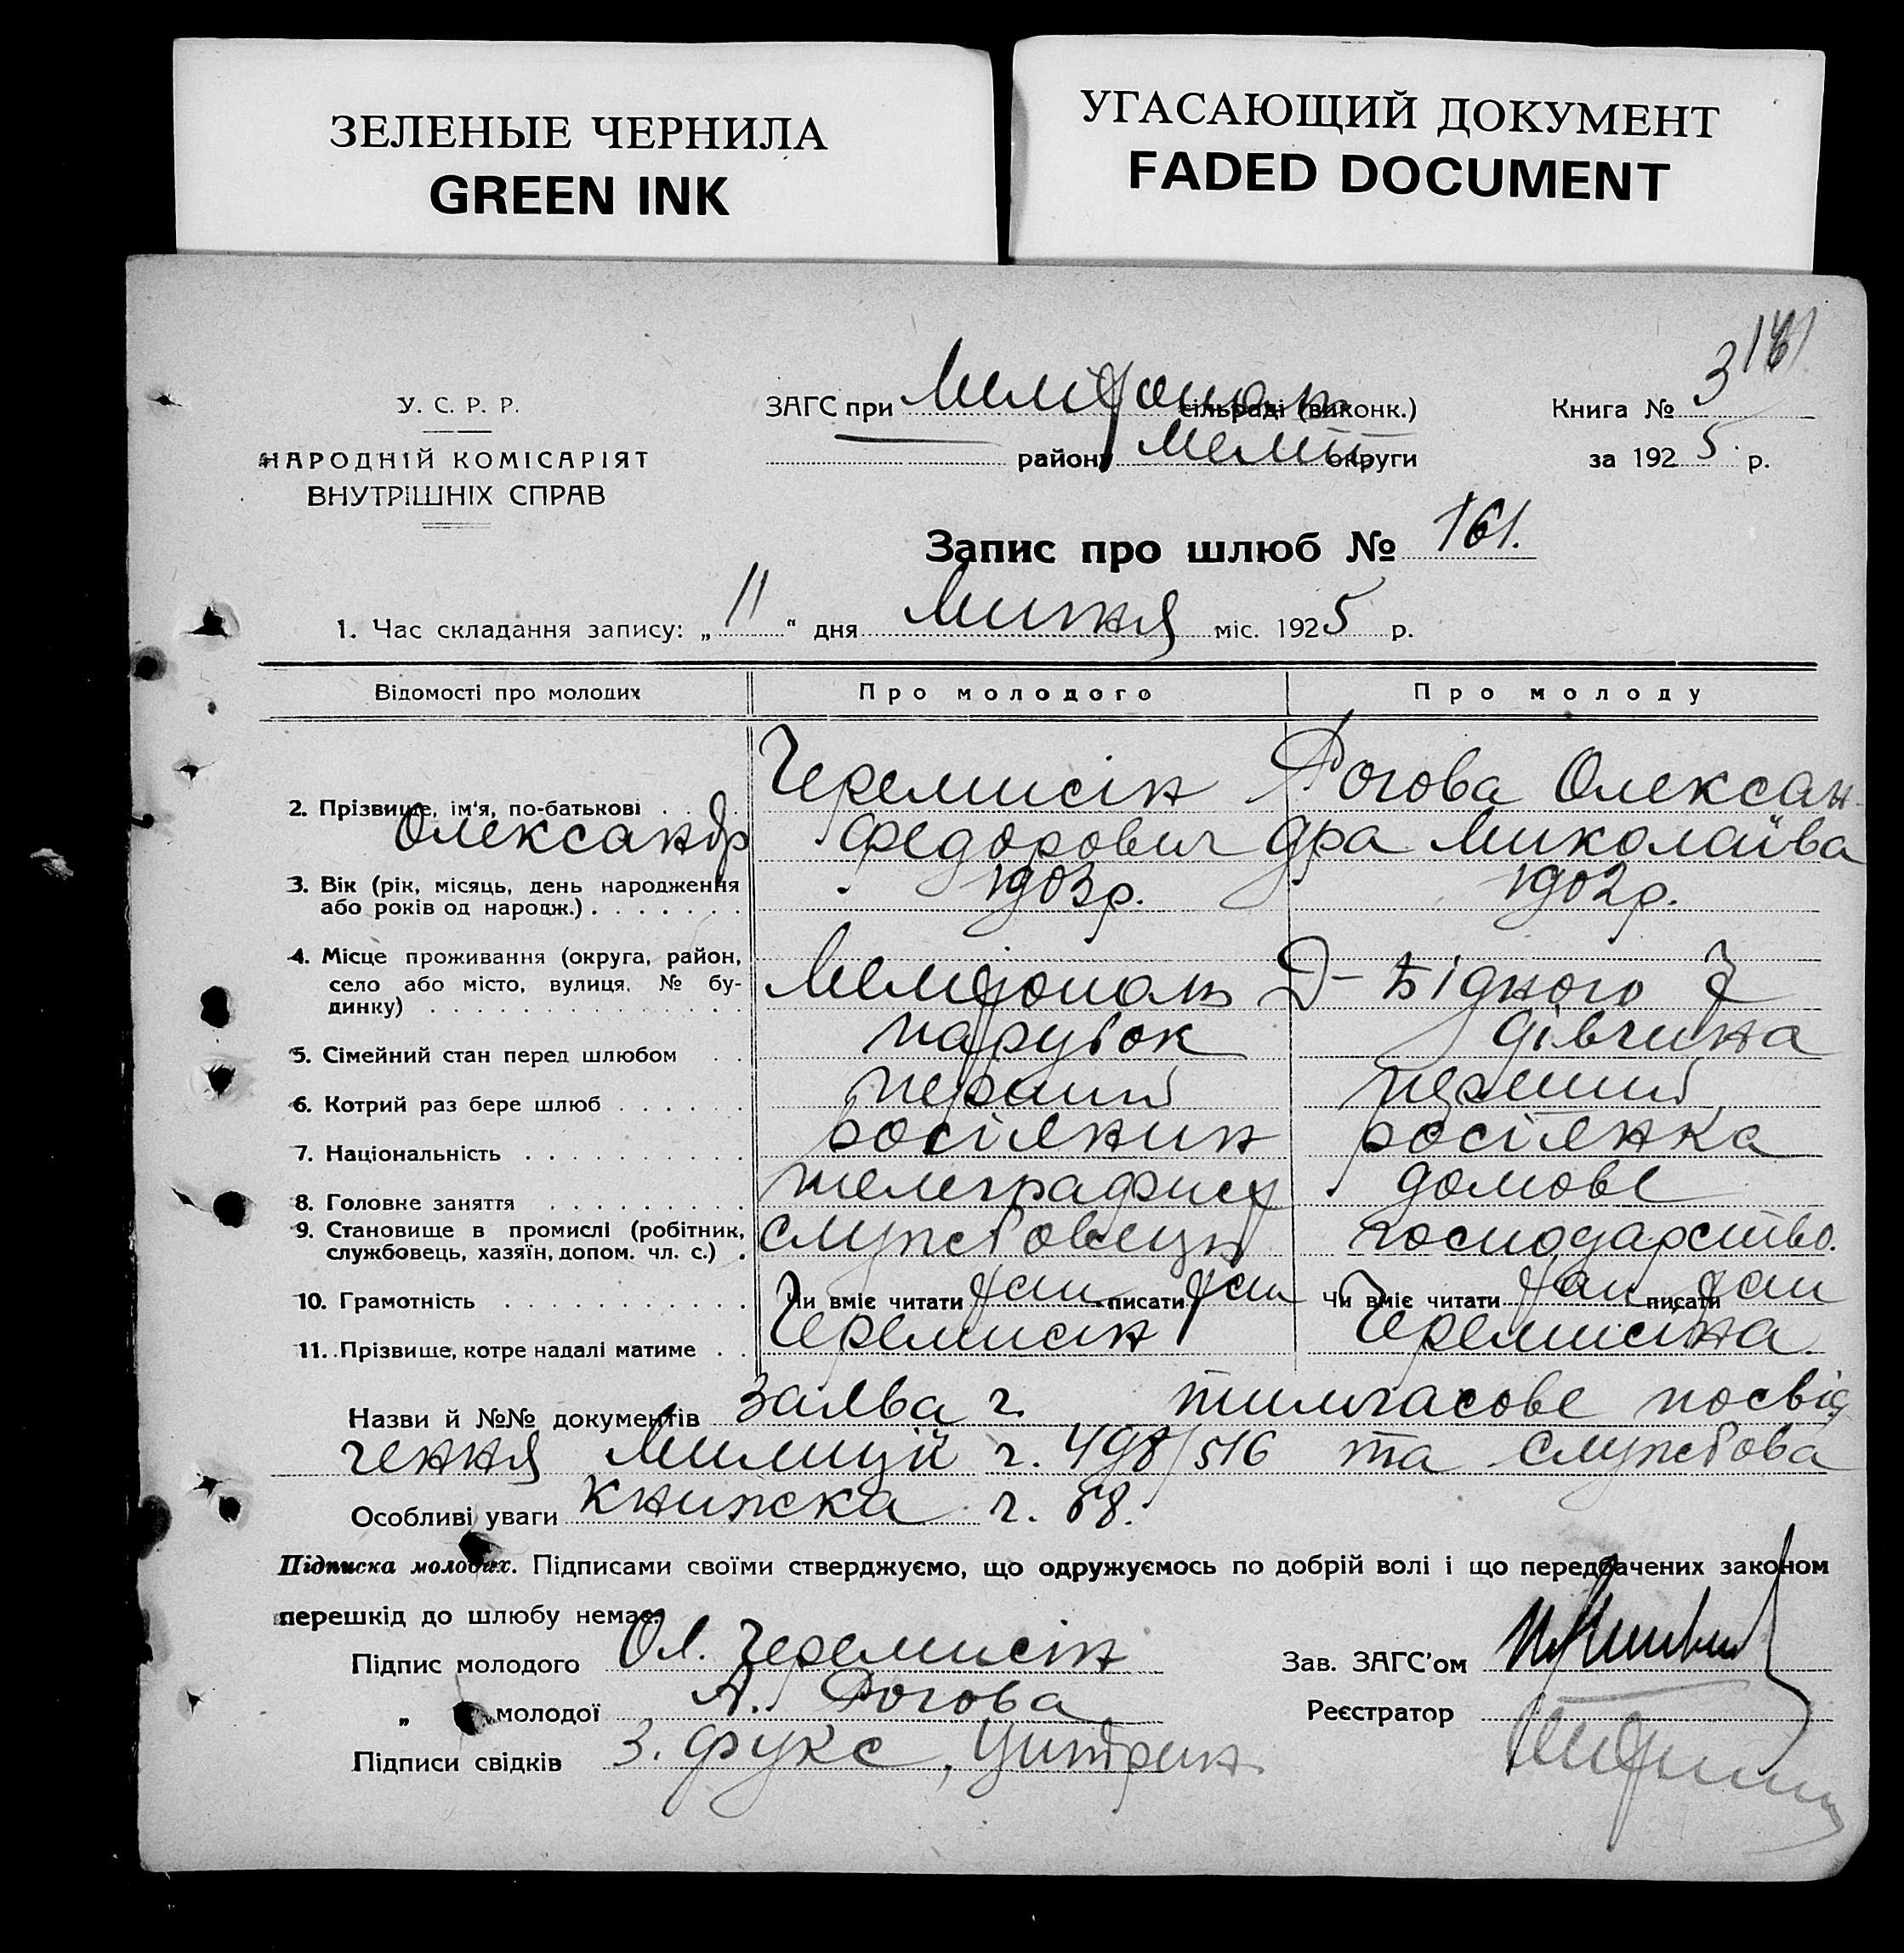 ЗЕЛЕНЫЕ ЧЕРНИЛА
GREEN INK
УГАСАЮЩИЙ ДОКУМЕНТ
FADED DOCUMENT
181
У. С. Р. Р.
НАРОДНІЙ КОМІСАРІЯТ
ВНУТРІШНІХ СПРАВ
ЗАГС при Мелітополь сільраді (виконк.)
району Меліт округи
Книга № 3
за 1925 р.
Запис про шлюб № 161.
1. Час складання запису: „ 11 “ дня Липня міс. 1925 р.
Відомості про молодих Про молодого Про молоду
2. Прізвище, ім'я, по-батькові Черемисін Рогова Олексан-
Олександр Федорович дра Миколаївa
3. Вік (рік, місяць, день народження 1903р. 1902р.
або років од народж.)
4. Місце проживання (округа, район,
село або місто, вулиця, № бу- Мелітополь Д-Бідного 7
динку)
5. Сімейний стан перед шлюбом парубок дівчина
6. Котрий раз бере шлюб перший перший
7. Національність росіянин росіянка
8. Головне заняття телеграфист домове
9. Становище в промислі (робітник, службовець господарство.
службовець, хазяїн, допом. чл. с.)
10. Грамотність Чи вміє читати так писати так Чи вміє читати так писати так
11. Прізвище, котре надалі матиме Черемисін Черемисіна
Назви й №№ документів заява ч. тимчасове посвід
чення Милиції ч. 498/516 та службова
Особливі уваги книжка ч. 58.
Підписка молодих. Підписами своїми стверджуємо, що одружуємось по добрій волі і що передбачених законом
перешкід до шлюбу немає.
Підпис молодого Ол. Черемисін Зав. ЗАГС'ом
„ молодої А. Рогова Реєстратор
Підписи свідків З. Фукс, Цитрин